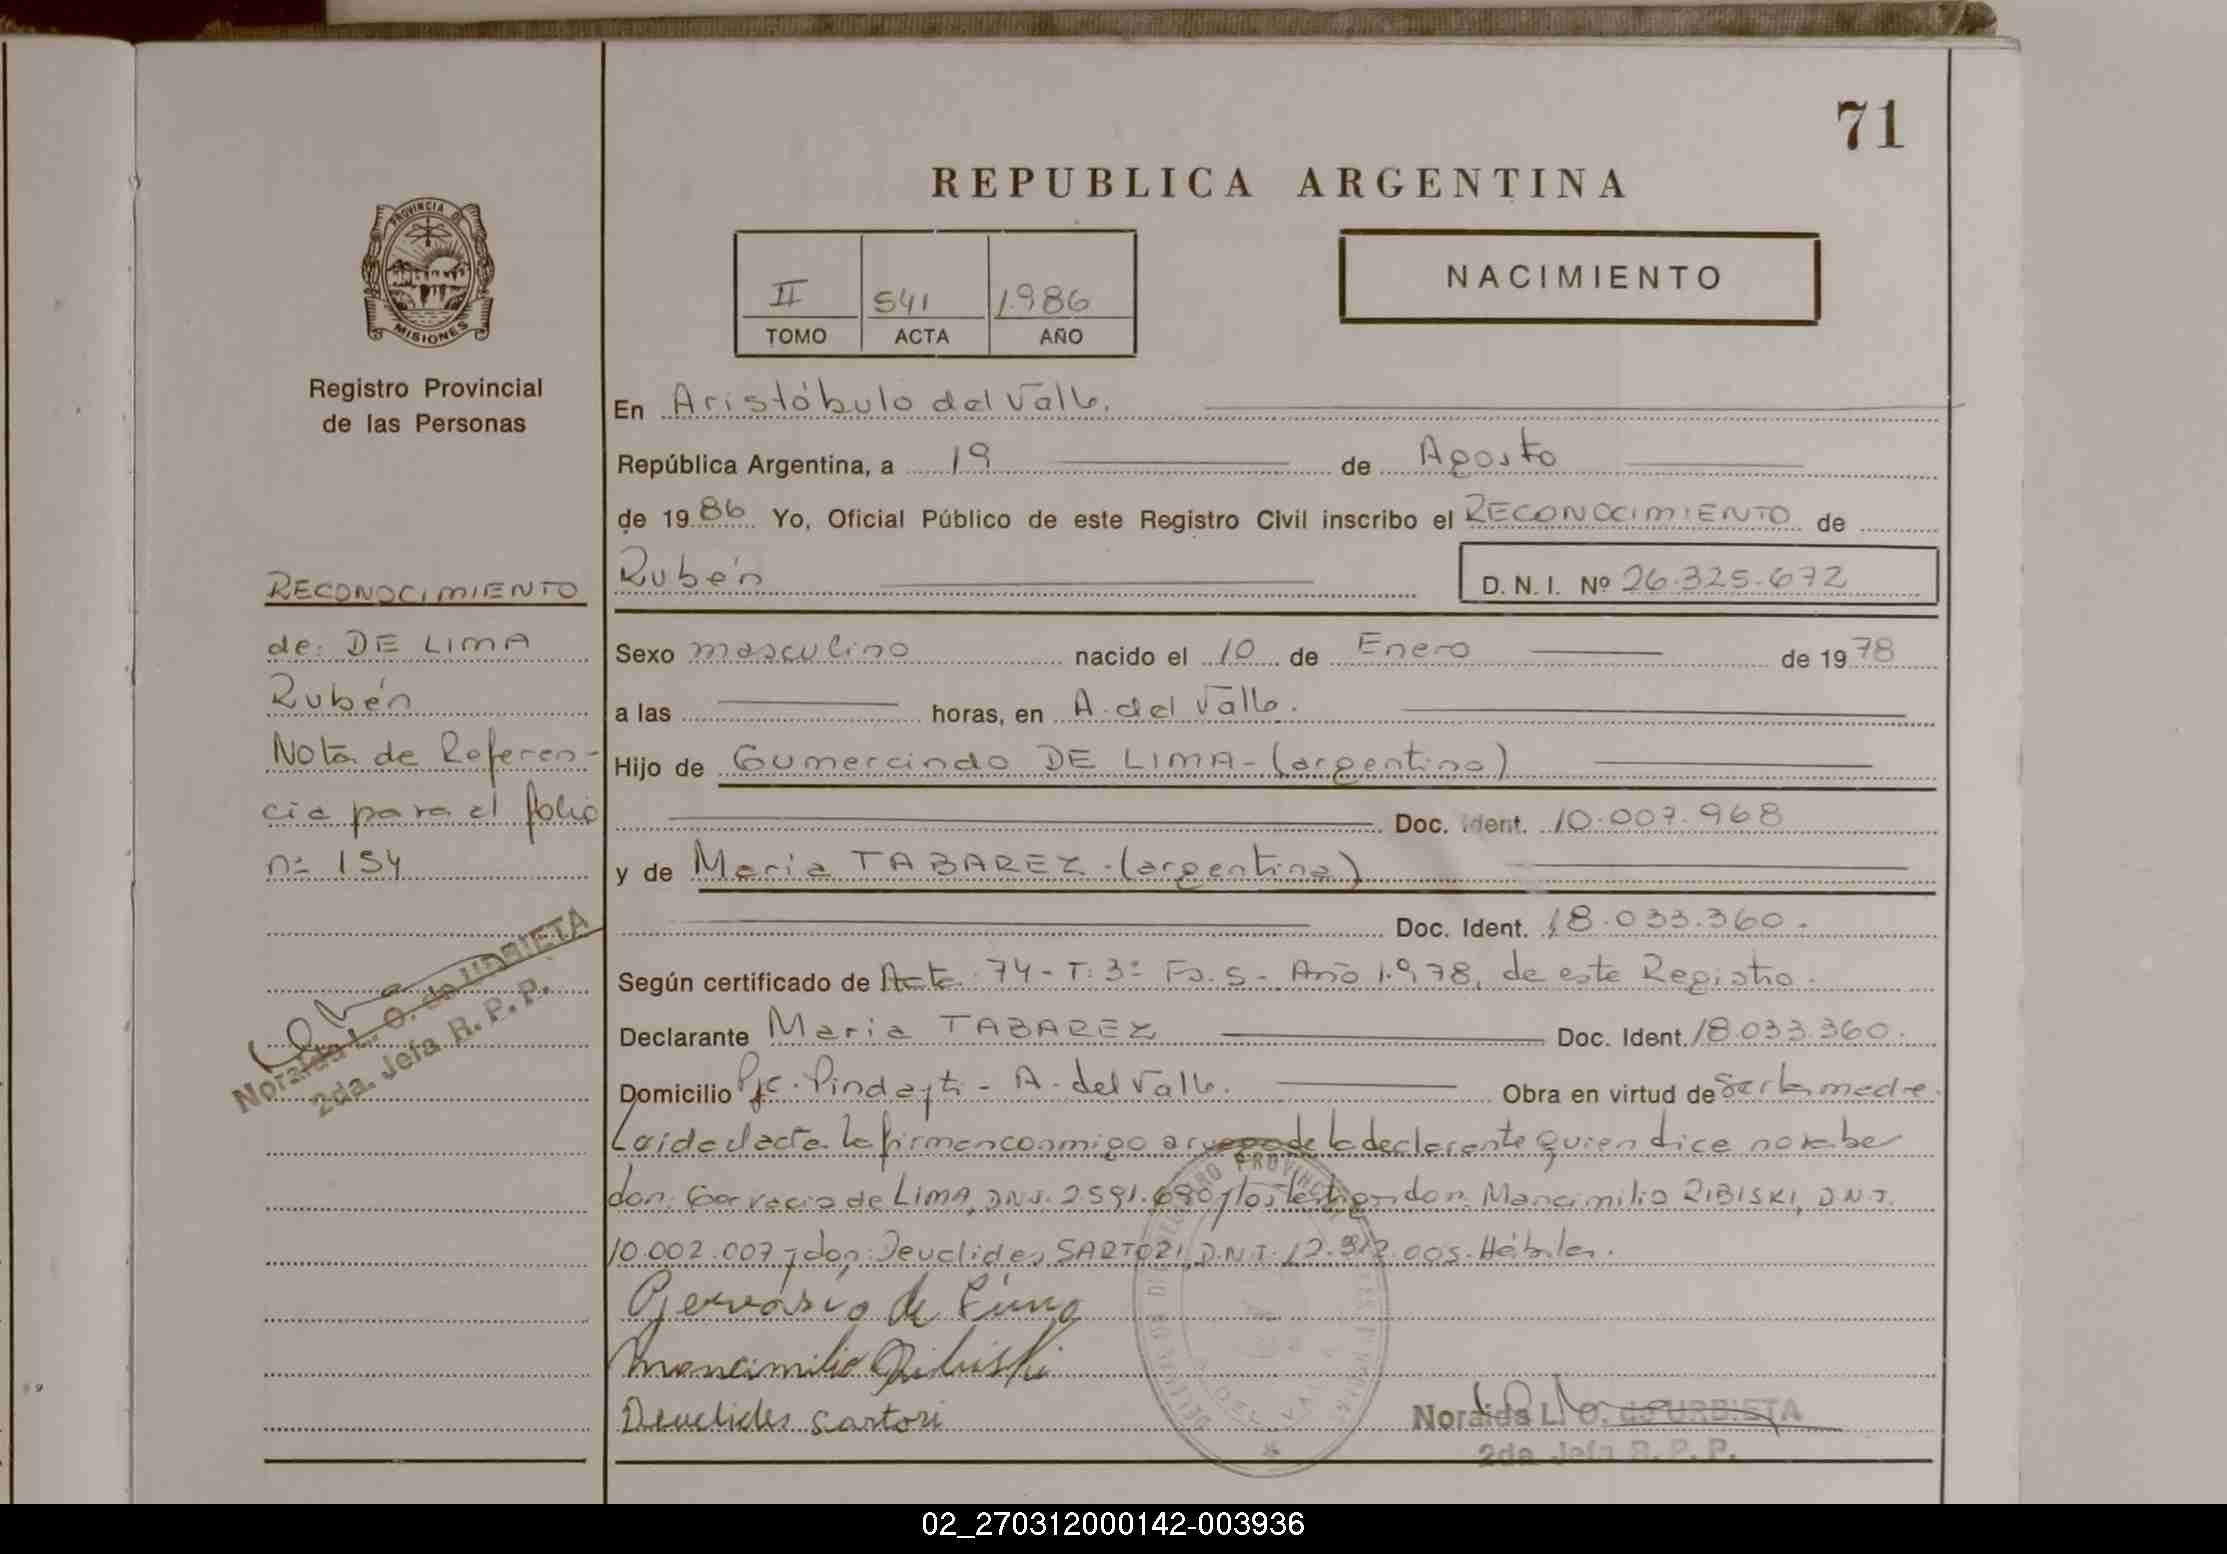 71
REPUBLICA ARGENTINA
PROVINCIA DE
MISIONES
Registro Provincial
de las Personas
II 541 1.986
TOMO ACTA AÑO
NACIMIENTO
En Aristóbulo del Valle.
República Argentina, a 19 de Agosto
de 1986 Yo, Oficial Público de este Registro Civil inscribo el RECONOCIMIENTO de
Rubén D. N. I. Nº 26.325.672
RECONOCIMIENTO
de: DE LIMA
Rubén
Nota de Referen-
cia para el folio
nº 154
Noraida L. O. de URBIETA
2da. Jefa R. P. P.
Sexo masculino nacido el 10 de Enero de 1978
a las horas, en A. del Valle.
Hijo de Gumercindo DE LIMA - (argentino)
Doc. Ident. 10.007.968
y de Maria TABAREZ - (argentina)
Doc. Ident. 18.033.360.
Según certificado de Acta 74 - T: 3º Fo. 5 - Año 1.978, de este Registro.
Declarante Maria TABAREZ Doc. Ident. 18.033.360.
Domicilio Pje. - A. del Valle. Obra en virtud de ser la madre.
Leida el acta la firman conmigo a ruego de la declarante quien dice no saber
don: de LIMA, D.N.I. 2.591.690 y los testigos don: Mancimilio RIBISKI, D.N.I.
10.002.007 y don: Deuclides SARTORI, D.N.I. 12. .005. Hábiles.
Gervásio de Lima
Mancimilio Ribiski
Deuclides Sartori
Noraida L. O. de URBIETA
2da Jefa R. P. P.
02_270312000142-003936